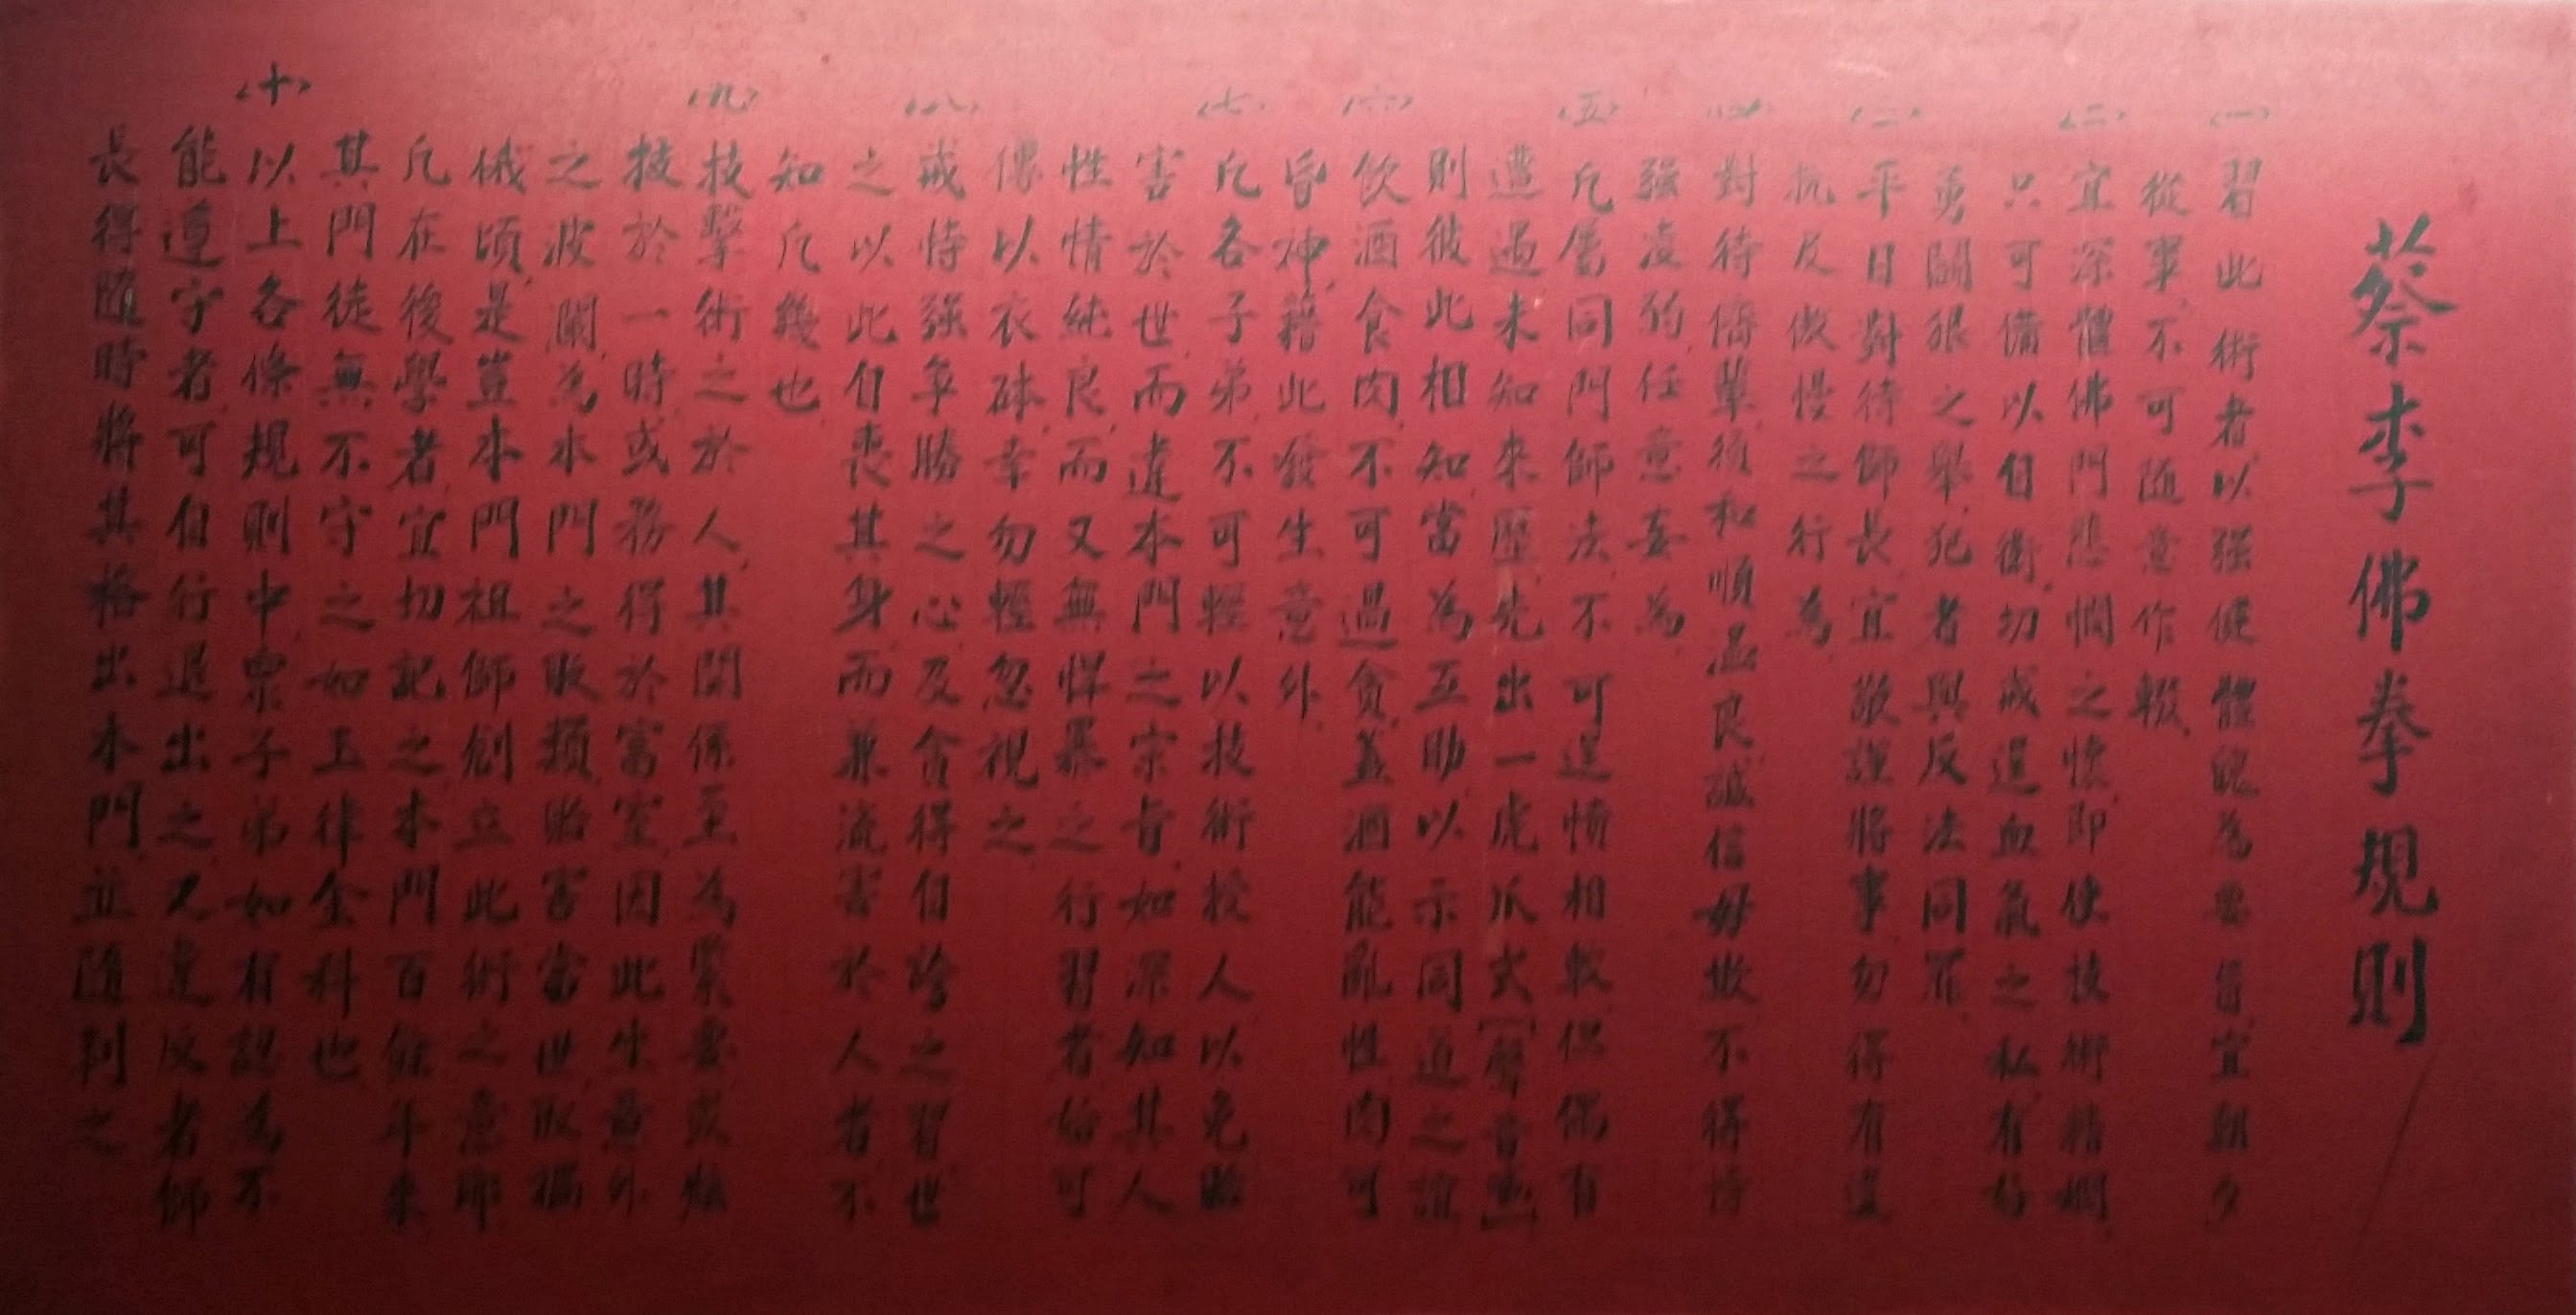 蔡李佛拳規則
(一)習此術者以强健體魄為要旨宜朝夕
從事不可隨意作輟
(二)宜深體佛門悲憫之懷即使技術精嫻
只可備以自衛切戒逞血氣之私有好
勇鬭狠之舉犯者與反法同罪
(三)平日對待師長宜敬謹將事勿得有違
抗反傲慢之行為
(四)對待儕輩須和順溫良誠信毋欺不得恃
强凌弱任意妄為
(五)凡屬同門師法不可逞憤相較但偶有
遭過未知來歷先出一虎爪式[聲音]
則彼此相知當為互助以示同道之誼
(六)飲酒食肉不可過貪蓋酒能亂性肉可
昏神藉此發生意外
(七)凡各子弟不可輕以技術授人以免貽
害於世而違本門之宗旨如深知其人
性情純良而又無悍暴之行習者始可
傳以衣砵幸勿輕忽視之
(八)戒恃强争勝之心及貪得自誇之習世
之以此自喪其身而兼流害於人者不
知凡幾也
(九)技擊術之於人其關係至為緊要或炫
技於一時或務得於富室因此生意外
之波瀾為本門之敗類貽害當世
俄頃是豈本門祖師創立此術之意耶
凡在後學者宜切記之本門百餘年來
其門徒無不守之如玉律金科也
(十)以上各條規則中眾子弟如有認為不
能遵守者可自行退出之又違反者師
長得隨時將其格出本門並隨刊之